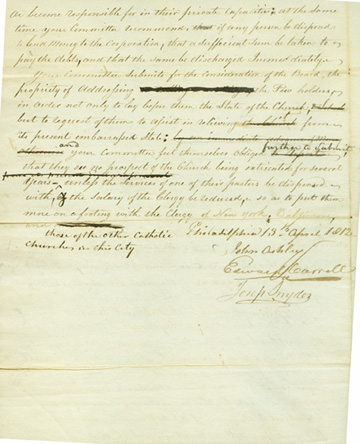 or become responsible for in their private Capacities. at the Same
time your Committee recommend, if any person be disposed
to lend Money to the Corporation, that a sufficient Sum be taken to
pay the debts, and that the same be discharged Immediately.
Your Committee Submits for the Consideration of the Board, the
propriety of Addressing the Pew holders,
in order not only to lay before them the State of the Church,
but to request of them to assist in relieving from
its present embarrassed State:
and your Committee feel themselves obliged further to submit,
that they see no prospect of the Church being extricated for several
Years unless the Services of one of their pastors be dispensed
with, or the Salary of the Clergy be reduced, so as to put them
more on a footing with the Clergy of New York, Baltimore,
those of the other Catholic
Churches in this City
Philadelphia 13th April 1812
John Ashley
Edward Carrell
Joseph Snyder